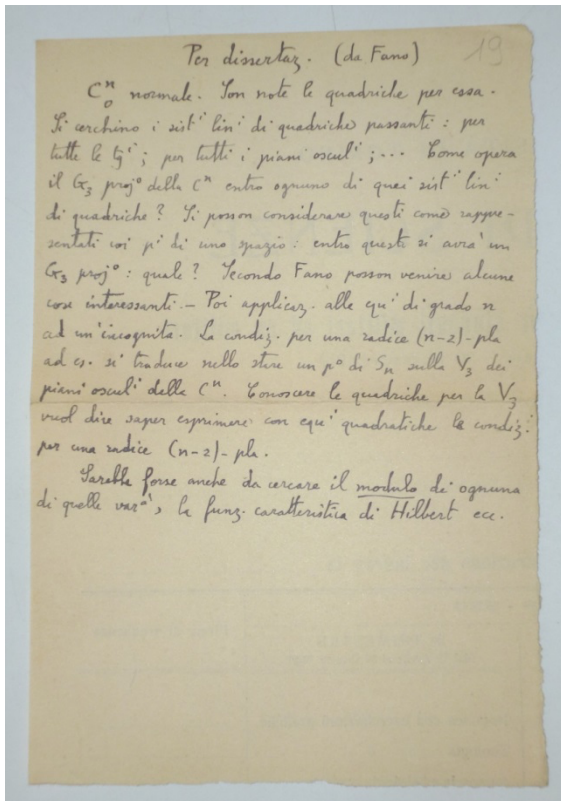 Per dissertaz. (da Fano) 19
C₀ⁿ normale. Son note le quadriche per essa.
Si cerchino i sistⁱ linⁱ di quadriche passanti: per
tutte le tgⁱ; per tutti i piani osculⁱ; ... Come opera
il G₃ projᵒ della Cⁿ entro ognuno di quei sistⁱ linⁱ
di quadriche? Si posson considerare questi come rappre-
sentati coi pⁱ di uno spazio: entro questi si avrà un
G₃ projᵒ: quale? Secondo Fano posson venire alcune
cose interessanti. — Poi applicaz. alle equⁱ di grado n
ad un'incognita. La condiz. per una radice (n-2)-pla
ad es. si traduce nello stare un pᵒ di Sₙ sulla V₃ dei
piani osculⁱ della Cⁿ. Conoscere le quadriche per la V₃
vuol dire saper esprimere con equⁱ quadratiche la condiz.
per una radice (n-2)-pla.
Sarebbe forse anche da cercare il modulo di ognuna
di quelle varᵃⁱ, la funz. caratteristica di Hilbert ecc.